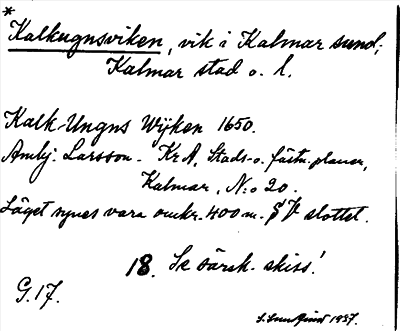 *
Kalkugnsviken, vik i Kalmar sund;
Kalmar stad o. l.
Kalk-Ungns Wijken 1650.
Ambj. Larsson. Kr A, Stads- o. fästn.planer,
Kalmar, N:o 20.
Läget synes vara omkr. 400 m. SV slottet.
18. Se särsk. skiss!
G.17.
1937.